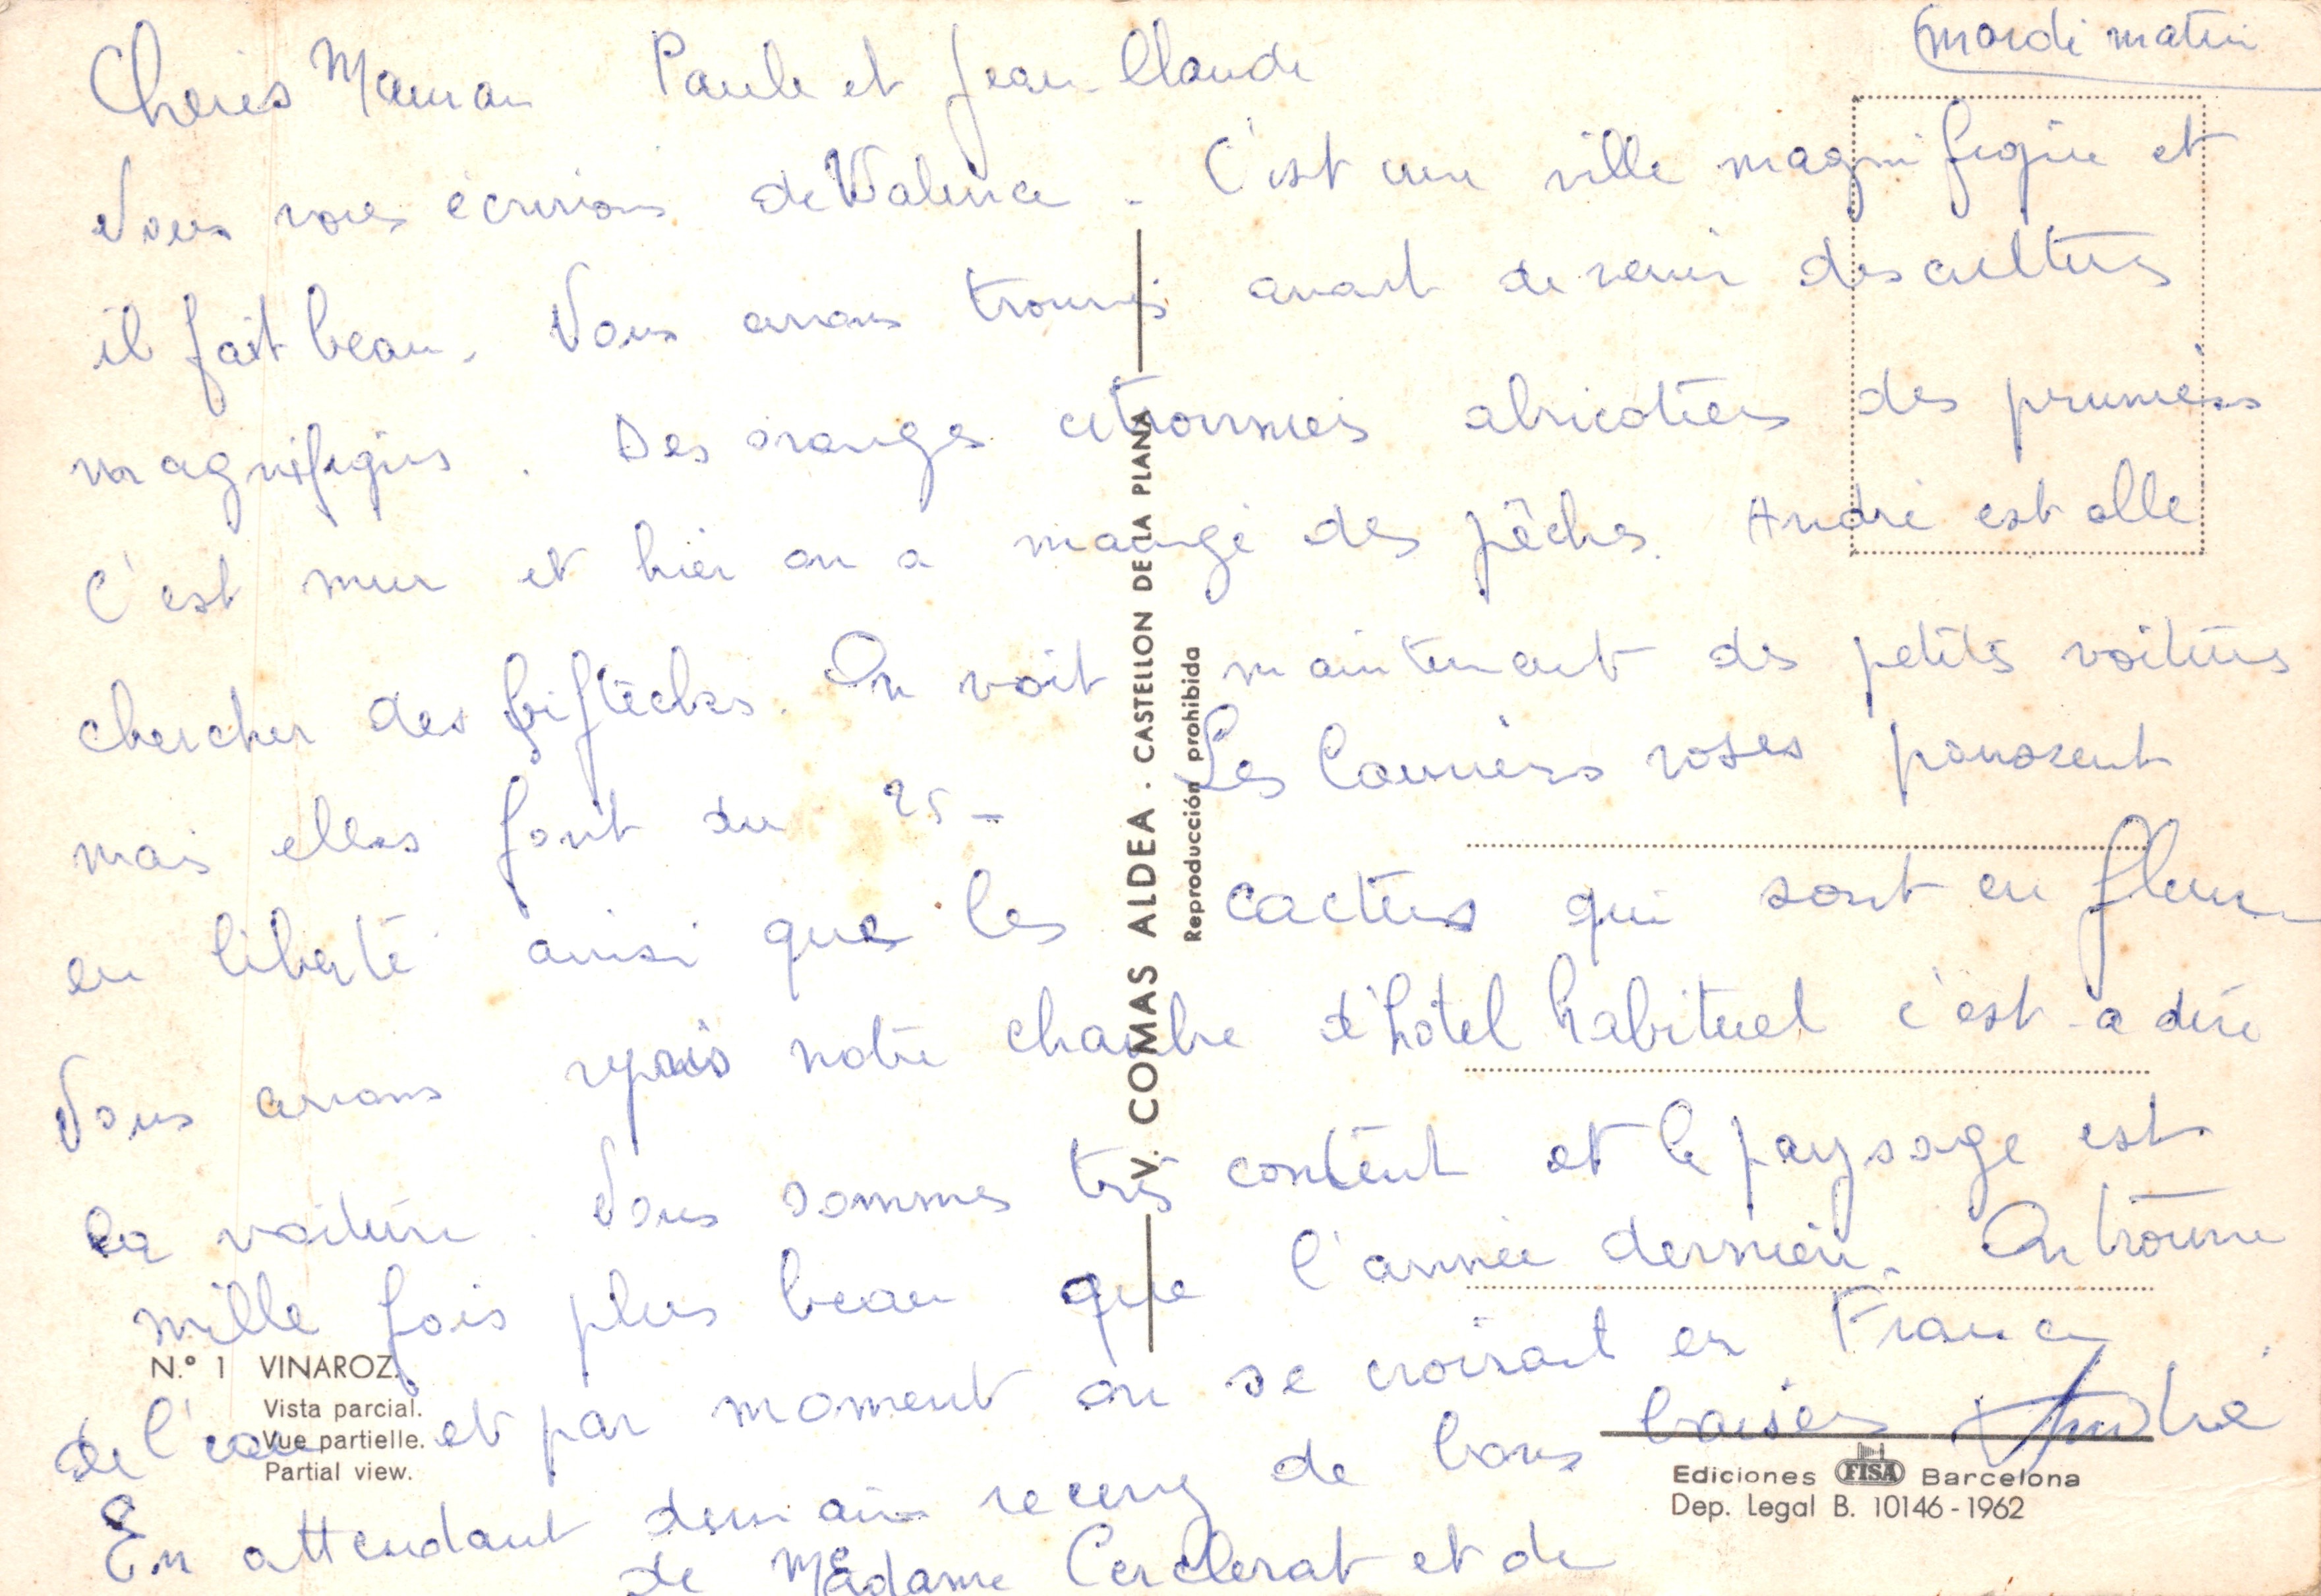 mardi matin
Cheris Maman Paule et Jean-Claude
Nous vous écrivons de Valence. C'est une ville magnifique et
il fait beau. Nous avons trouvés avant de venir des cultures
magnifiques. Des oranges citronniers abricotiers des pruniers
C'est mur et hier on a mangé des pêches. André est allé
chercher des biftecks. On voit maintenant des petites voitures
mais elles font du 25 - Les lauriers roses poussent
en liberté ainsi que les cactus qui sont en fleurs
Nous avons repris notre chambre d'hotel habituel c'est-a dire
la voiture. Nous sommes très content et le paysage est
mille fois plus beau que l'année dernière. On trouve
de l'eau et par moment on se croirait en France
En attendant demain recevez de bons baisers André
de Madame Cerclerat et de
V. COMAS ALDEA · CASTELLON DE LA PLANA
Reproducción prohibida
N.º 1 VINAROZ.
Vista parcial.
Vue partielle.
Partial view.
Ediciones FISA Barcelona
Dep. Legal B. 10146-1962